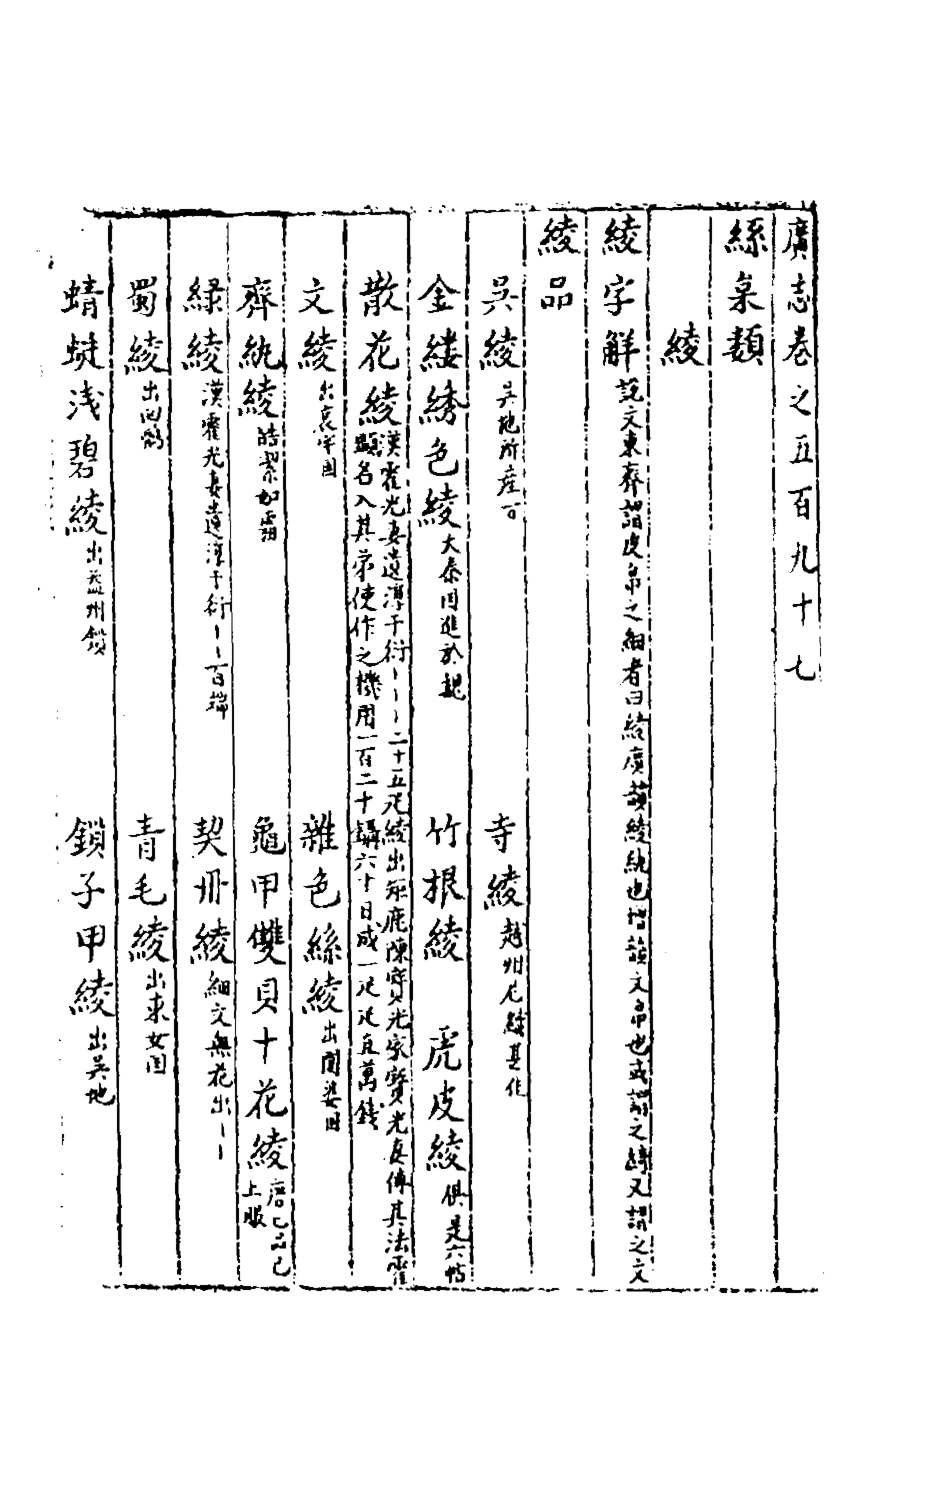 廣志卷之五百九十七
絲枲類
綾
綾字解 說文東齊謂皮帛之細者曰綾廣韻綾紈也增韻文帛也或謂之綺又謂之文
綾品
吳綾 吳地所產 寺綾 越州尼綾甚佳
金縷綉色綾 大秦囯進於魏 竹根綾 虎皮綾 俱是六
散花綾 漢霍光妻遺淳于衍〻〻〻二十五疋綾出鉅鹿陳寶光家寶光妻傳其法霍顯名入其第使作之機用一百二十鑷六十日成一疋疋直萬錢
文綾 出哀牢囯 雜色絲綾 出闍婆囯
齊紈綾 皓潔如霜 龜甲雙貝十花綾 唐七品已上服
緑綾 漢霍光妻遺淳于衍〻〻百端 契丹綾 細文無花出〻〻
蜀綾 出回鶻 青毛綾 出東女囯
蜻蜓浅碧綾 出益州鎖 鎖子甲綾 出吳地